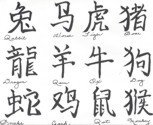 兔 马 虎 猪
Rabbit Horse Tiger Boar
龍 羊 牛 狗
Dragon Ram Ox Dog
蛇 鸡 鼠 猴
Snake Rat